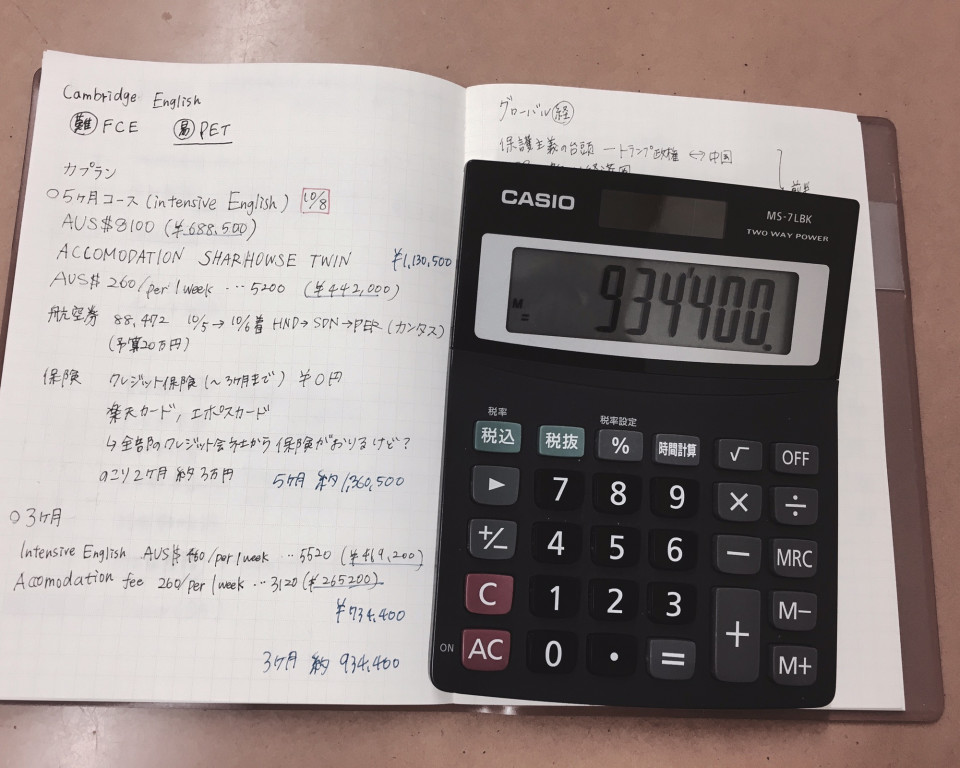 Cambridge English
難 FCE 易 PET
カプラン
○5ヶ月コース (intensive English) 10/8
AUS$8100 (¥688,500)
ACCOMODATION SHARHOWSE TWIN ¥1,130,500
AUS$260/per 1 week … 5200 (¥442,000)
航空券 88,472 10/5→10/6着 HND→SDN→PER (カンタス)
(予算20万円)
保険 クレジット保険 (~3ヶ月まで) ¥0円
楽天カード, エポスカード
↳全部のクレジット会社から保険がおりるけど?
のこり2ヶ月 約3万円 5ヶ月 約1,360,500
○3ヶ月
Intensive English AUS$460/per 1 week … 5520 (¥469,200)
Accomodation fee 260/per 1 week … 3120 (¥265200)
¥734,400
3ヶ月 約 934,400
グローバル 経
保護主義の台頭 ートランプ政権 ↔ 中国
前半
CASIO
MS-7LBK
TWO WAY POWER
M
=
934'400.
税率
税率設定
税込 税抜 % 時間計算 √ OFF
▶ 7 8 9 × ÷
+/− 4 5 6 − MRC
C 1 2 3 + M−
ON AC 0 • = M+